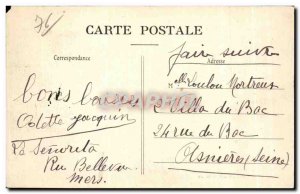 76
CARTE POSTALE
Correspondance
Adresse
faire suivre
Mlle Loulou Mortreux
2 Villa du Bac
24 rue du Bac
Asnières (Seine)
bons baisers
Odette Jacquin
La Señorita
Rue Bellevue
Mers.